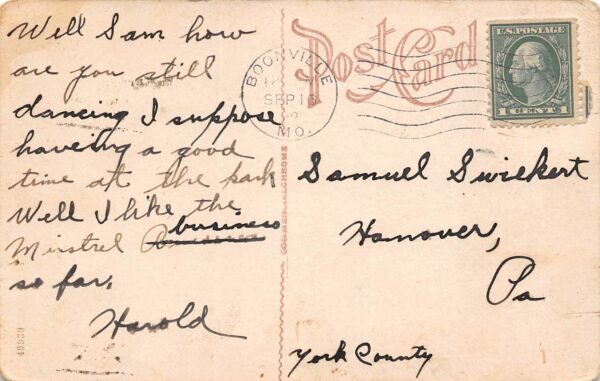 Well Sam how
are you still
dancing I suppose
haveing a good
time at the park
Well I like the
Minstrel business
so far,
Harold
49939
Post Card
BOONVILLE
SEP 16
MO.
U.S. POSTAGE
1 CENT 1
Samuel Swickert
Hanover,
Pa
York County